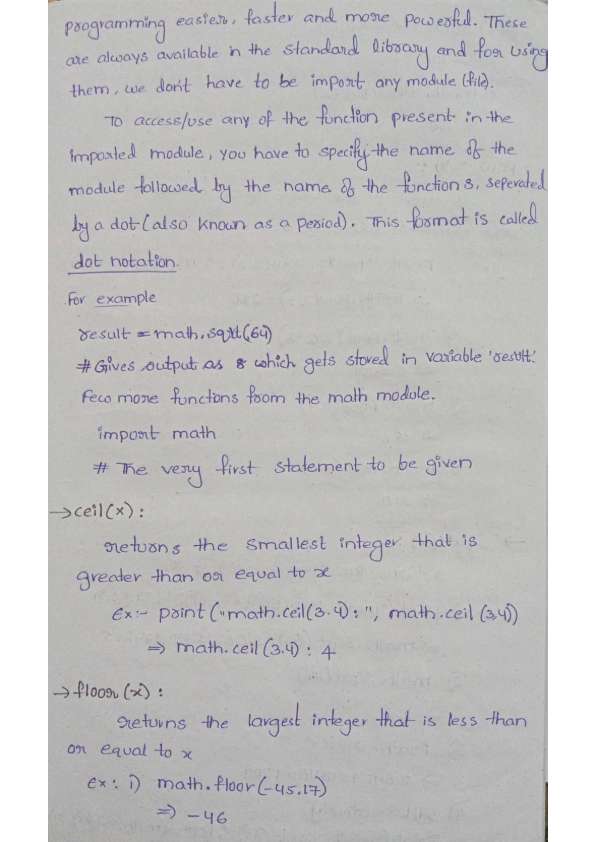 programming easier, faster and more powerful. These
are always available in the standard library and for using
them, we don't have to be import any module (file).
To access/use any of the function present in the
imported module, you have to specify the name of the
module followed by the name of the functions, seperated
by a dot (also known as a period). This format is called
dot notation.
For example
result = math.sqrt(64)
# Gives output as 8 which gets stored in variable 'result'.
Few more functions from the math module.
import math
# The very first statement to be given
→ ceil(x) :
returns the smallest integer that is
greater than or equal to x
Ex:- print ("math.ceil(3.4) : ", math.ceil (3.4))
=> math.ceil (3.4) : 4
→ floor (x) :
returns the largest integer that is less than
or equal to x
Ex: i) math.floor(-45.17)
=> -46